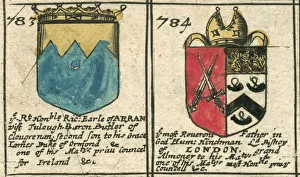 783
784
ye Rt Honble Ric: Earle of ARRAN
Vist Tulough Baron Butler of
Clougrenan, second son to his Grace
James Duke of Ormond &
one of his Matys privi councill
for Ireland &c.
ye most Reverend Father in
God Hum: Hinchman Ld Bishop
of LONDON, grand
Almoner to his Matie
one of his Matys privi
councill &c